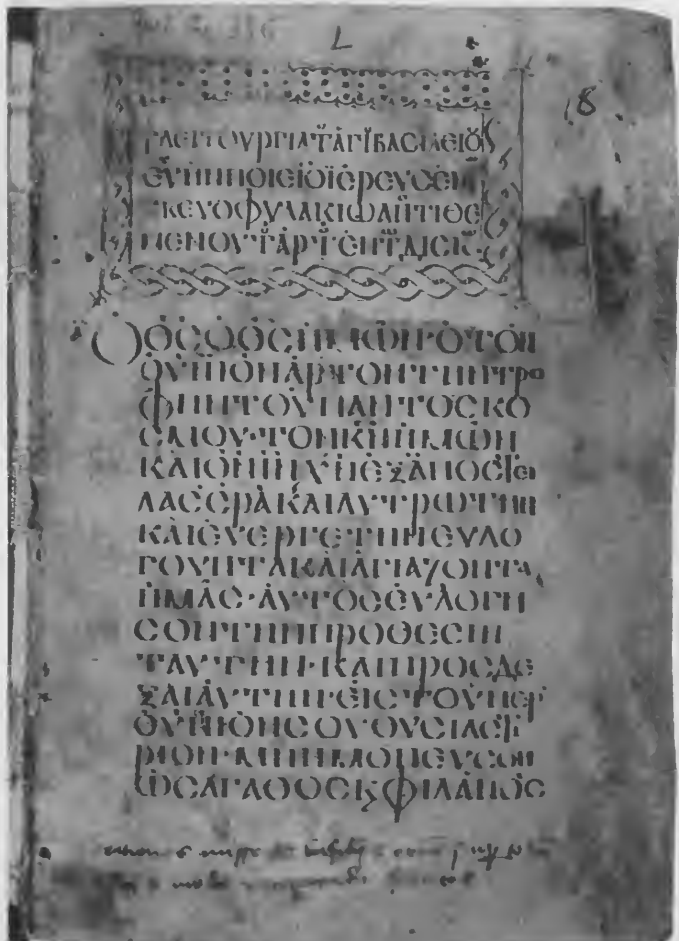 L
18
ΛΕΙΤΟΥΡΓΙΑ Τ ΑΓΙ ΒΑCΙΛΕΙΟΥ
ΕΥΧΗ Η ΠΟΙΕΙ Ο ΙΕΡΕΥC ΕΝ
CΚΕΥΟΦΥΛΑΚΙΩ ΑΠΤΙΘΕ
ΜΕΝΟΥ Τ ΑΡΤ ΕΝ Τ ΔΙCΚ
Ο ΘC Ο ΘC ΗΜΩΝ· Ο ΤΟΝ
ΟΥΝΙΟΝ ΑΡΤΟΝ ΤΗΝ ΤΡΟ
ΦΗΝ ΤΟΥ ΠΑΝΤΟC ΚΟ
CΜΟΥ· ΤΟΝ ΚΝ ΗΜΩΝ
ΚΑΙ ΘΝ ΙΝ ΧΝ ΕΞΑΠΟCΤΕΙ
ΛΑC CΡΑ ΚΑΙ ΛΥΤΡΩΤΗΝ
ΚΑΙ ΕΥΕΡΓΕΤΗΝ ΕΥΛΟ
ΓΟΥΝΤΑ ΚΑΙ ΑΓΙΑΖΟΝΤΑ
ΗΜΑC· ΑΥΤΟC ΕΥΛΟΓΗ
CΟΝ ΤΗΝ ΠΡΟΘΕCΙΝ
ΤΑΥΤΗΝ· ΚΑΙ ΠΡΟCΔΕ
ΞΑΙ ΑΥΤΗΝ· ΕΙC ΤΟ ΥΠΕΡ
ΟΥΝΙΟΝ CΟΥ ΘΥCΙΑCΤΗ
ΡΙΟΝ· ΜΝΗΜΟΝΕΥCΟΝ
ΩC ΑΓΑΘΟC Κ ΦΙΛΑΝΟC